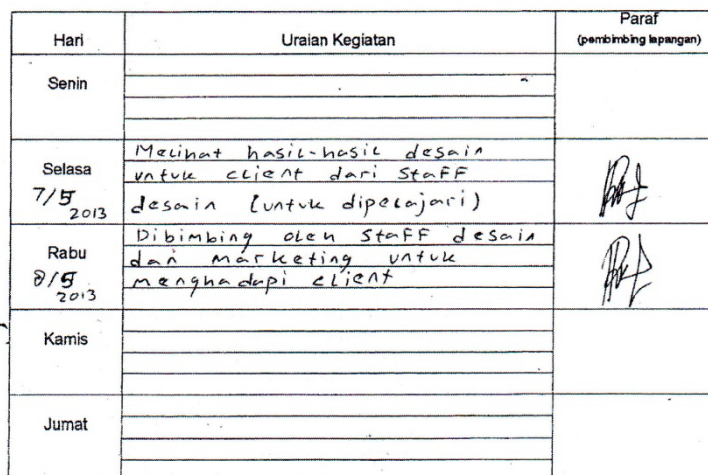 Hari Uraian Kegiatan Paraf
(pembimbing lapangan)
Senin
Selasa
7/5
2013
Melihat hasil-hasil desain
untuk client dari Staff
desain (untuk dipelajari)
Rabu
8/5
2013
Dibimbing oleh Staff desain
dan marketing untuk
menghadapi client
Kamis
Jumat